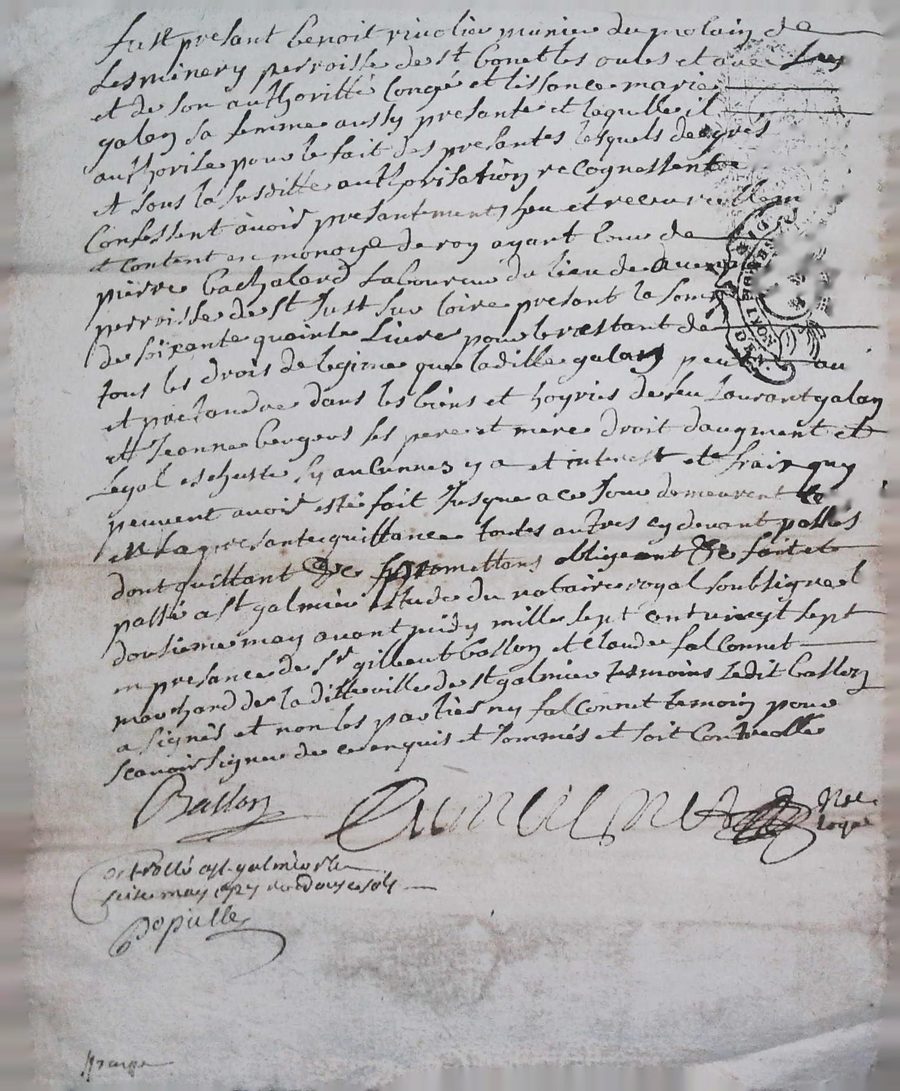 fust presant benoit rivolier munier du molain de
Lesminery perroisse de st bonet les oules et avec Luy
et de son authoritté Congé et lissance marie
galan sa femme aussy presante et laquelle il
authorise pour le fait des presantes lesquels de gres
et sous la susditte authorisation recognessent
Confessent avoir presantement heu et receu reellem
et content en monoye de roy ayant Cour de
pierre bachalard Laboureur du lieu de
perroisse de st Just sur loire presant la somme
de soixante quainse Livre pour le restant de
tous les drois de legime que laditte galan peut
et pactandre dans les biens et hoyries de feu Laurant galan
et Jeanne bergeus ses pere et mere droit daugment et
Legal escheute sy aucunnes y a et interest et fraix quy
peuvent avoir esté fait Jusque a ce Jour demeurent
en la presante quittance toutes autres cy devant passés
dont quittant promettans obligeant fait et
passé a st galmier estude du notaire royal soubsigne l
dousieme may avant midy mille sept cent vingt sept
en presance de sr gilbeut ballon et Claude falconnet
marchand de la ditte ville de st galmier tesmoins ledit ballon
a signés et non les parties ny falconnet temoin pour
scavoir signer de ce enquis et sommés et soit Controllé
Ballon
Not
royal
Controllé a st galmier le
seise may 1727 douse sols
Depuille